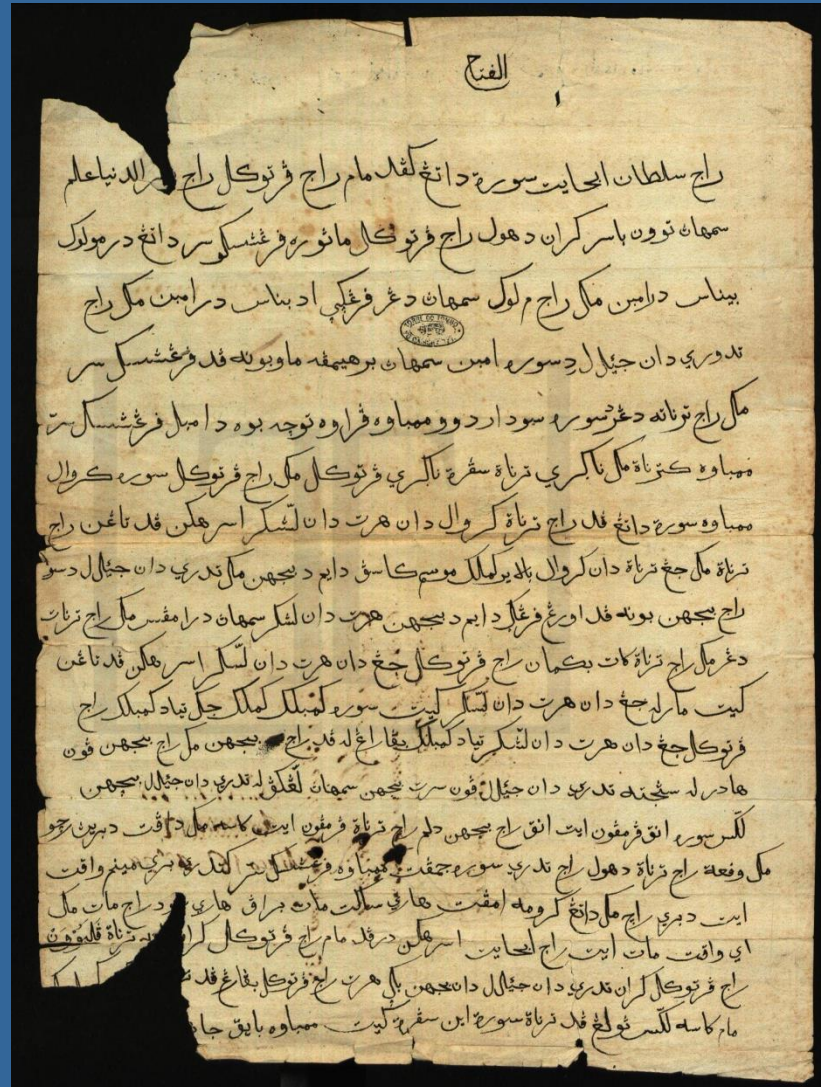 الفتح
١
راج سلطان ابحايت سورة داتڠ كڤد مام راج ڤرتوكل راج الدنيا علم
سمهان توون باسر كران دهول راج ڤرتوكل مانوره فرڠشسكو سر داتڠ در مولوك
بيناس درامبن مك راج ملوك سمهان دڠر فرڠكي اد بناس درامبن مك راج
تدوري دان جيئلل د سوره امبن سمهان برهيمڤه ماو بونه ڤد فرڠشسكل سر
TORRE DO TOMBO
مك راج ترناته دڠر سوره سودار دوو ممباوه ڤراوه توجه بوه د امبل فرڠشسكل سر
ممباوه كترناة مك ناكري ترناة سڤرة ناكري ڤرتوكل مك راج ڤرتوكل سوره كروال
ممباوه سورة داتڠ ڤد راج ترناة كروال دان هرت دان لشكر اسرهكن ڤد تاڠن راج
ترناة مك جڠ ترناة دان كروال باليو كملك موسم كاسڤ دايم د بيجهن مك تدري دان جيئلل د سوره
راج بيجهن بونه ڤد اورڠ فرڠكي دايم د بيجهن هرت دان لشكر سمهان درامڤس مك راج ترنات
دڠر مك راج ترناة كات بكمان راج ڤرتوكل جڠ دان هرت دان لشكر اسرهكن ڤد تاڠن
كيت مارله جڠ دان هرت دان لشكر كيت سوره كمبلك كملك جك تياد كمبلك راج
ڤرتوكل جڠ دان هرت دان لشكر تياد كمبلك بڤاراڠ له ڤد راج بيجهن مك راج بيجهن ڤون
هادرله سنجته تدري دان جيئلل ڤون سرت بيجهن سمهان لڠكڤ له تدري دان جيئلل بيجهن
لكس سوره انق ڤرمڤون ايت انق راج بيجهن دلم راج ترناة ڤرمڤون ايت كاسه مك داڤت دبرين رجو
مك وفعة راج ترناة دهول راج تدري سوره جمڤت ممباوه فرڠشسكل سر كتدره بري مينم واقت
ايت دبري راج مك داتڠ كرومه امڤت هاري ساكت مات براڤ هاري راج مات مك
اي واقت مات ايت راج ابحايت اسرهكن درڤد مام راج ڤرتوكل كران ترناة
راج ڤرتوكل كران تدري دان جيئلل دان بيجهن بلي هرت راج ڤرتوكل بڤارڠ ڤد
مام كاسه لكس تولڠ ڤد ترناة سورة اين سڤرة كيت ممباوه بايق